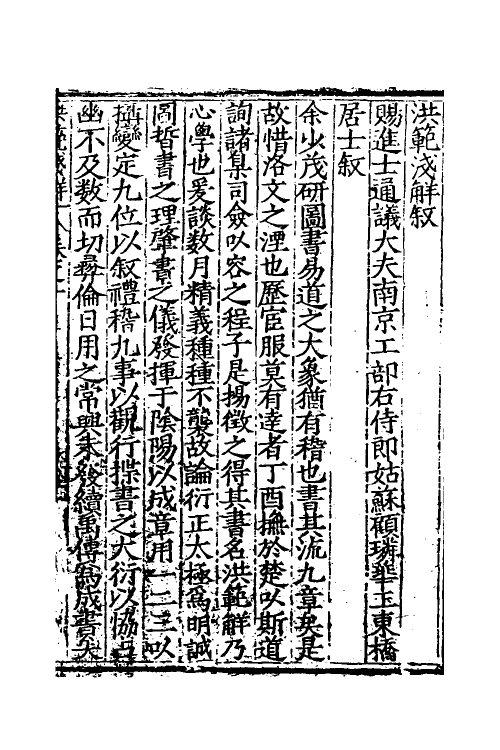 洪範淺解叙
賜進士通議大夫南京工部右侍郎姑蘇顧璘華玉東橋
居士叙
余少茂研圖書易道之大象猶有稽也書其流九章矣是
故惜洛文之湮也歷宦服莫有達者丁酉撫於楚以斯道
詢諸臬司僉以容之程子是揚徵之得其書名洪範解乃
心學也爰談數月精義種種不襲故論衍正太極爲明誠
圖晢書之理肇書之儀發揮于陰陽以成章用一二三以
撰變定九位以叙禮稽九事以觀行揲書之大衍以協吉
幽不及數而切彝倫日用之常與朱發續禹傳爲成書矣